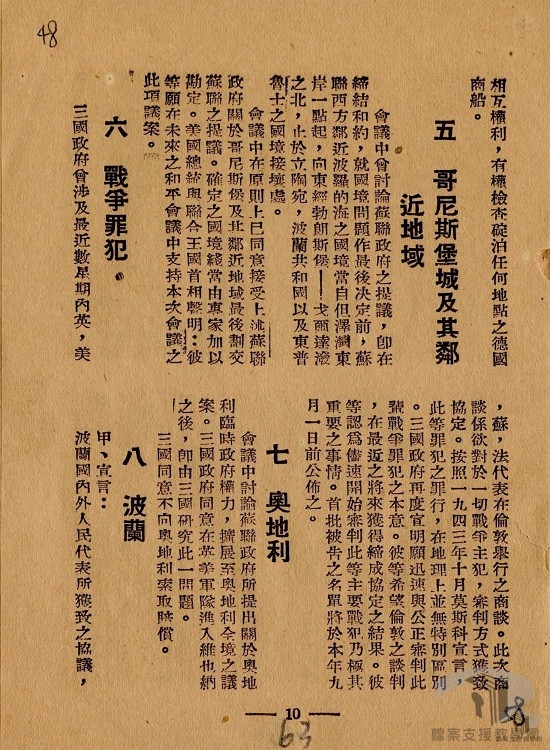 48
相互權利，有權檢查碇泊任何地點之德國
商船。
五 哥尼斯堡城及其鄰
近地域
會議中曾討論蘇聯政府之提議，卽在
締結和約，就國境問題作最後决定前，蘇
聯西方鄰近波羅的海之國境當自但澤灣東
岸一點起，向東經勃朗斯堡——戈爾達
之北，止於立陶宛，波蘭共和國以及東普
魯士之國境接壤處。
會議中在原則上已同意接受上述蘇聯
政府關於哥尼斯堡及其鄰近地域最後劃交
蘇聯之提議。確定之國境綫當由專家加以
勘定。美國總統與聯合王國首相聲明：彼
等願在未來之和平會議中支持本次會議之
此項議案。
六 戰爭罪犯
三國政府曾涉及最近數星期內英，美
，蘇，法代表在倫敦舉行之商談。此次商
談係欲對於一切戰爭主犯，審判方式獲致
協定。按照一九四三年十月莫斯科宣言，
此等罪犯之罪行，在地理上並無特別區別
。三國政府再度宣明願迅速與公正審判此
輩戰爭罪犯之本意。彼等希望倫敦之談判
，在最近之將來獲得締成協定之結果。彼
等認為儘速開始審判此等主要戰犯乃極其
重要之事情。首批被吿之名單將於本年九
月一日前公佈之。
七 奧地利
會議中討論蘇聯政府所提出關於奧地
利臨時政府權力，擴展至奧地利全境之議
案。三國政府同意在英美軍隊進入維也納
之後，卽由三國研究此一問題。
三國同意不向奧地利索取賠償。
八 波蘭
甲、宣言：
波蘭國內外人民代表所獲致之協議，
— 10 —
63
8
檔案支援教學網